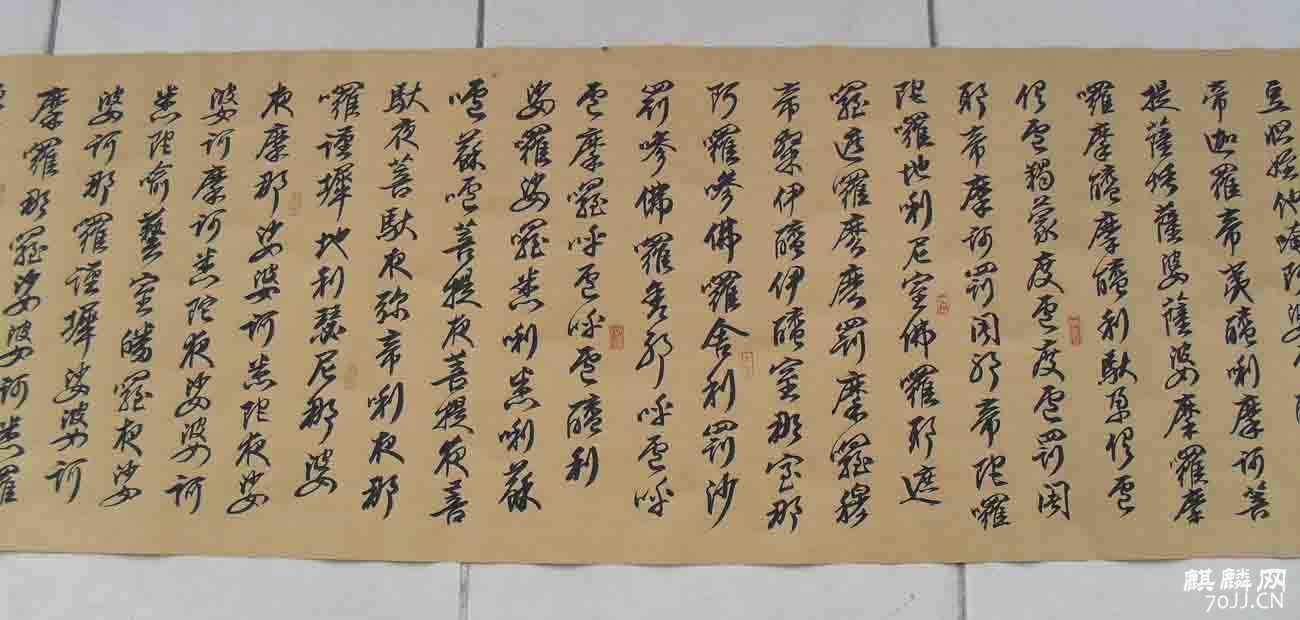 豆照舜他唵阿婆
帝迦羅帝夷醯唎摩訶菩
提薩埵薩婆薩婆摩囉摩
囉摩醯摩醯利馱孕俱盧
俱盧羯蒙度盧度盧罰闍
耶帝摩訶罰闍耶帝陀囉
陀囉地唎尼室佛囉耶遮
羅遮羅麼麼罰摩羅穆
帝隸伊醯伊醯室那室那
阿囉嘇佛囉舍利罰沙
罰嘇佛囉舍耶呼盧呼
盧摩羅呼盧呼盧醯利
娑囉娑羅悉唎悉唎蘇
嚧蘇嚧菩提夜菩提夜菩
馱夜菩馱夜彌帝唎夜那
囉謹墀地利瑟尼那婆
夜摩那娑婆訶悉陀夜娑
婆訶摩訶悉陀夜娑婆訶
悉陀喻藝室皤羅夜娑
婆訶那羅謹墀娑婆訶
摩囉那羅娑婆訶悉羅
麒麟网
70JJ.CN